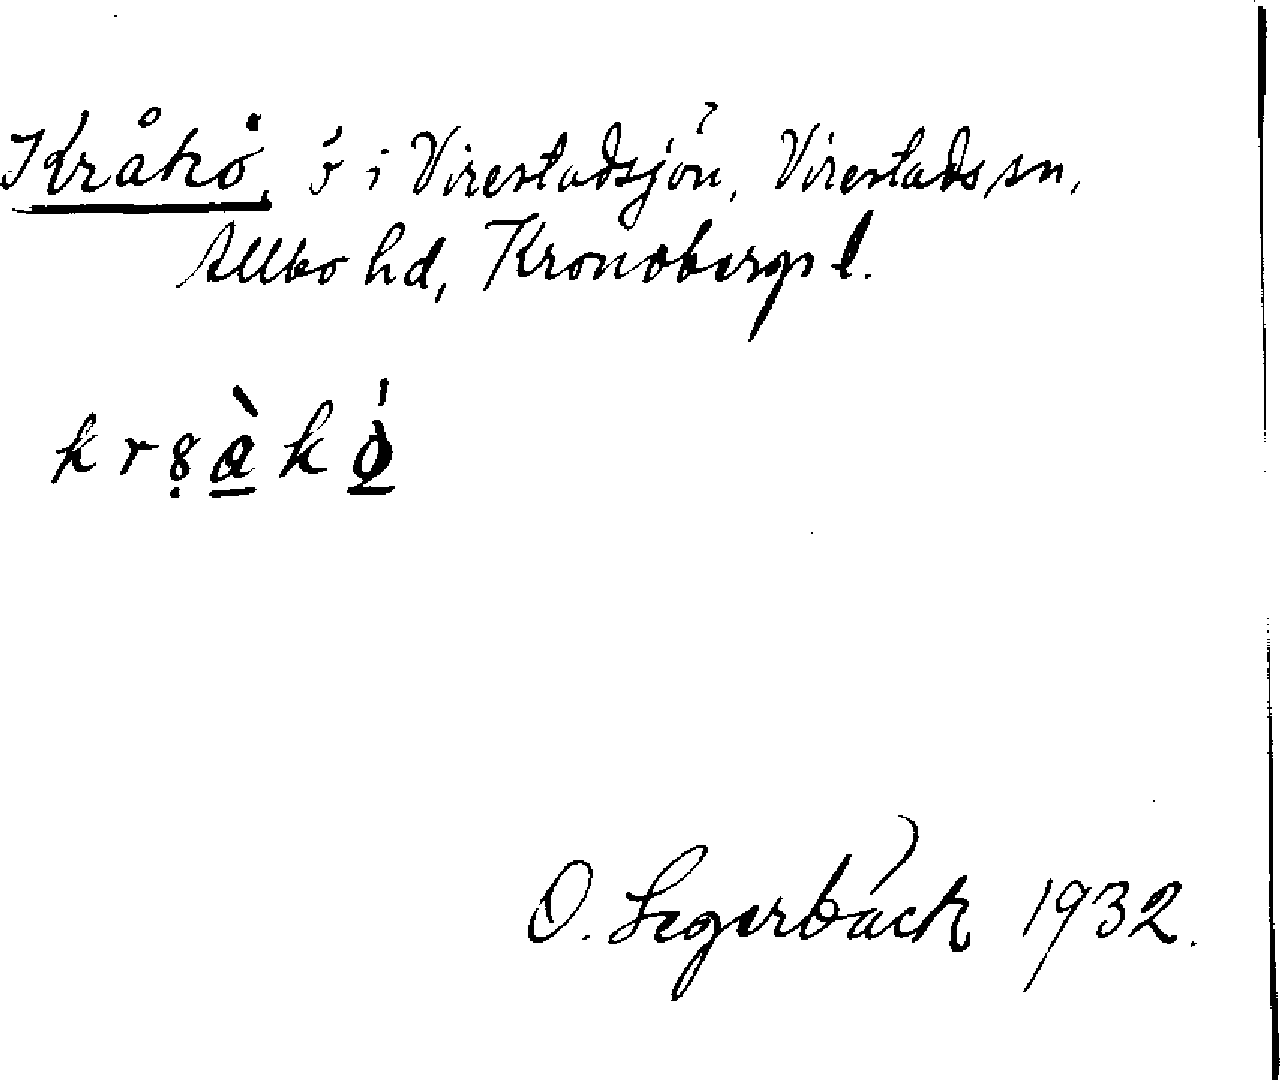 Kråkö, ö i Virestadsjön, Virestads sn,
Allbo hd, Kronobergs l.
O. Segerbäck 1932.